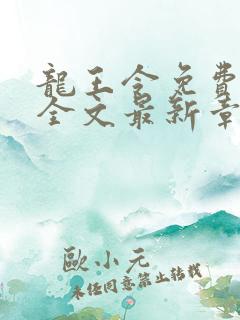 龍王令免費
全文最新章
歐小元
未經同意禁止轉載